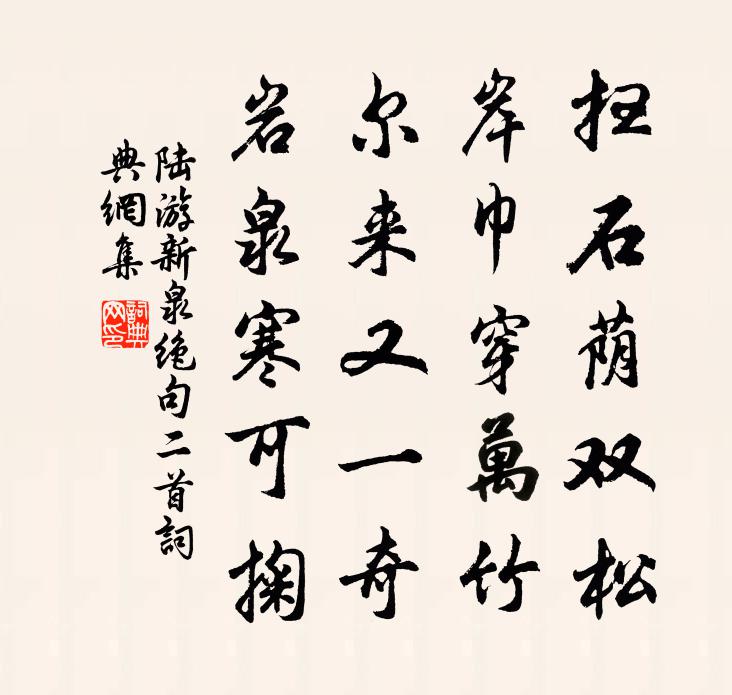 抂石荫双松
岸巾穿萬竹
尔来又一奇
岩泉寒可掬
陆游新泉绝句二首詞
典網集
詞典网印